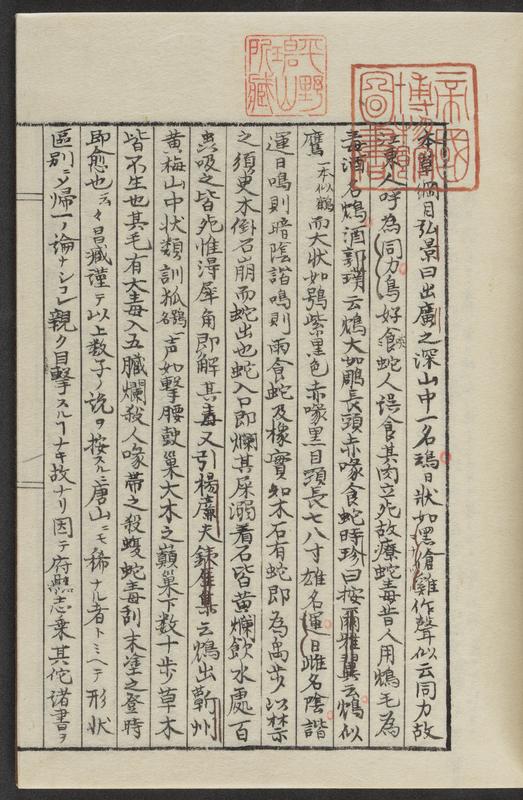 本草綱目弘景曰出廣之深山中一名䲰日狀如黑傖雞作聲似云同力故
江東人呼為同力鳥好食蛇人誤食其肉立死故療蛇毒昔人用鴆毛為
毒酒名鴆酒郭璞云鴆大如鵰長頸赤喙食蛇時珍曰按爾雅翼云鴆似
鷹一本似鶚而大狀如鴞紫黑色赤喙黒目頸長七八寸雄名運日雌名陰諧
運日鳴則晴陰諧鳴則雨食蛇及橡實知木石有蛇即為禹步以禁
之須臾木倒石崩而蛇出也蛇入口即爛其屎溺着石皆黄爛飲水處百
虫吸之皆死惟得犀角即解其毒又引楊廉夫鉄集云鴆出蘄州
黄梅山中状類訓狐声如擊腰鼓巢大木之巓巢下数十歩草木
皆不生也其毛有大毒入五臓爛殺人喙帯之殺蝮蛇毒刮末塗之登時
即愈也云々昌臧謹テ以上数子ノ説ヲ按スルニ唐山ニモ稀ナル者トミヘテ形状
區別ニノ帰一ノ論ナシコレ親ク目擊スルヿナキ故ナリ因テ府縣志乗其佗诸書ヲ
平野碧山所蔵
帝國博物館圖書